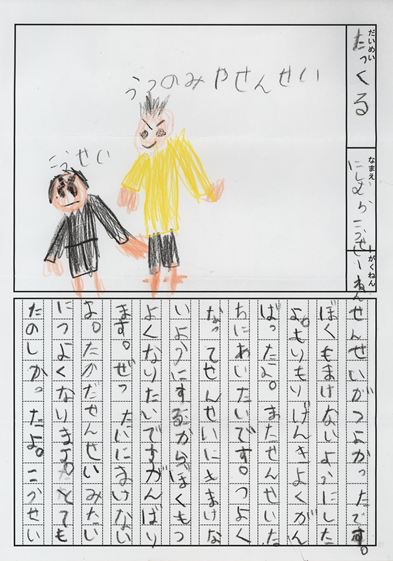 だいめい
たっくる
なまえ
にしむらこうせい
がくねん
一ねん
うつのみやせんせい
こうせい
せんせいがつよかったです。
ぼくもまけないようにした
よ。もりもりげんきよくがん
ばったよ。またせんせいた
ちにあいたいです。つよく
なってせんせいにまけな
いようにするからぼくもつ
よくなりたいですがんばり
ます。ぜったいにまけない
よ。たかだせんせいみたい
につよくなります。とても
たのしかったよ。こうせい